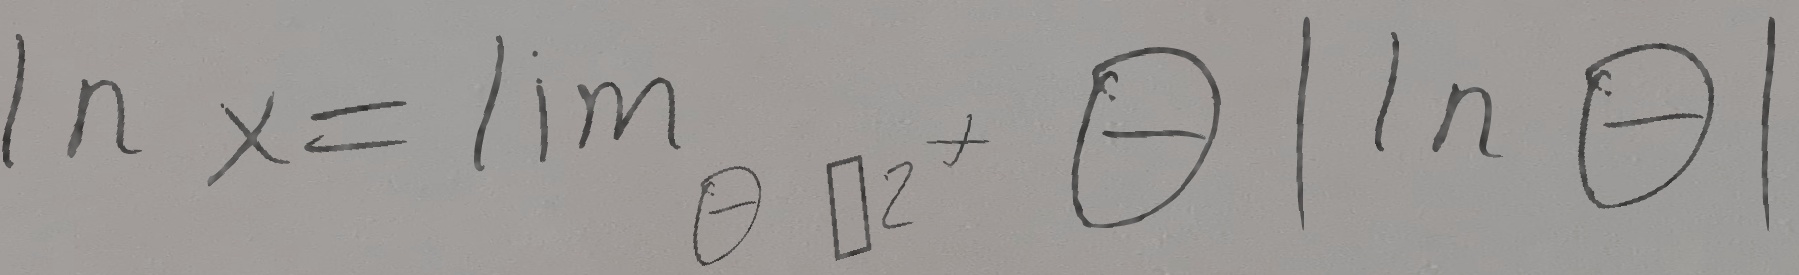 ln x = lim_{θ▯2^+} θ |ln θ|